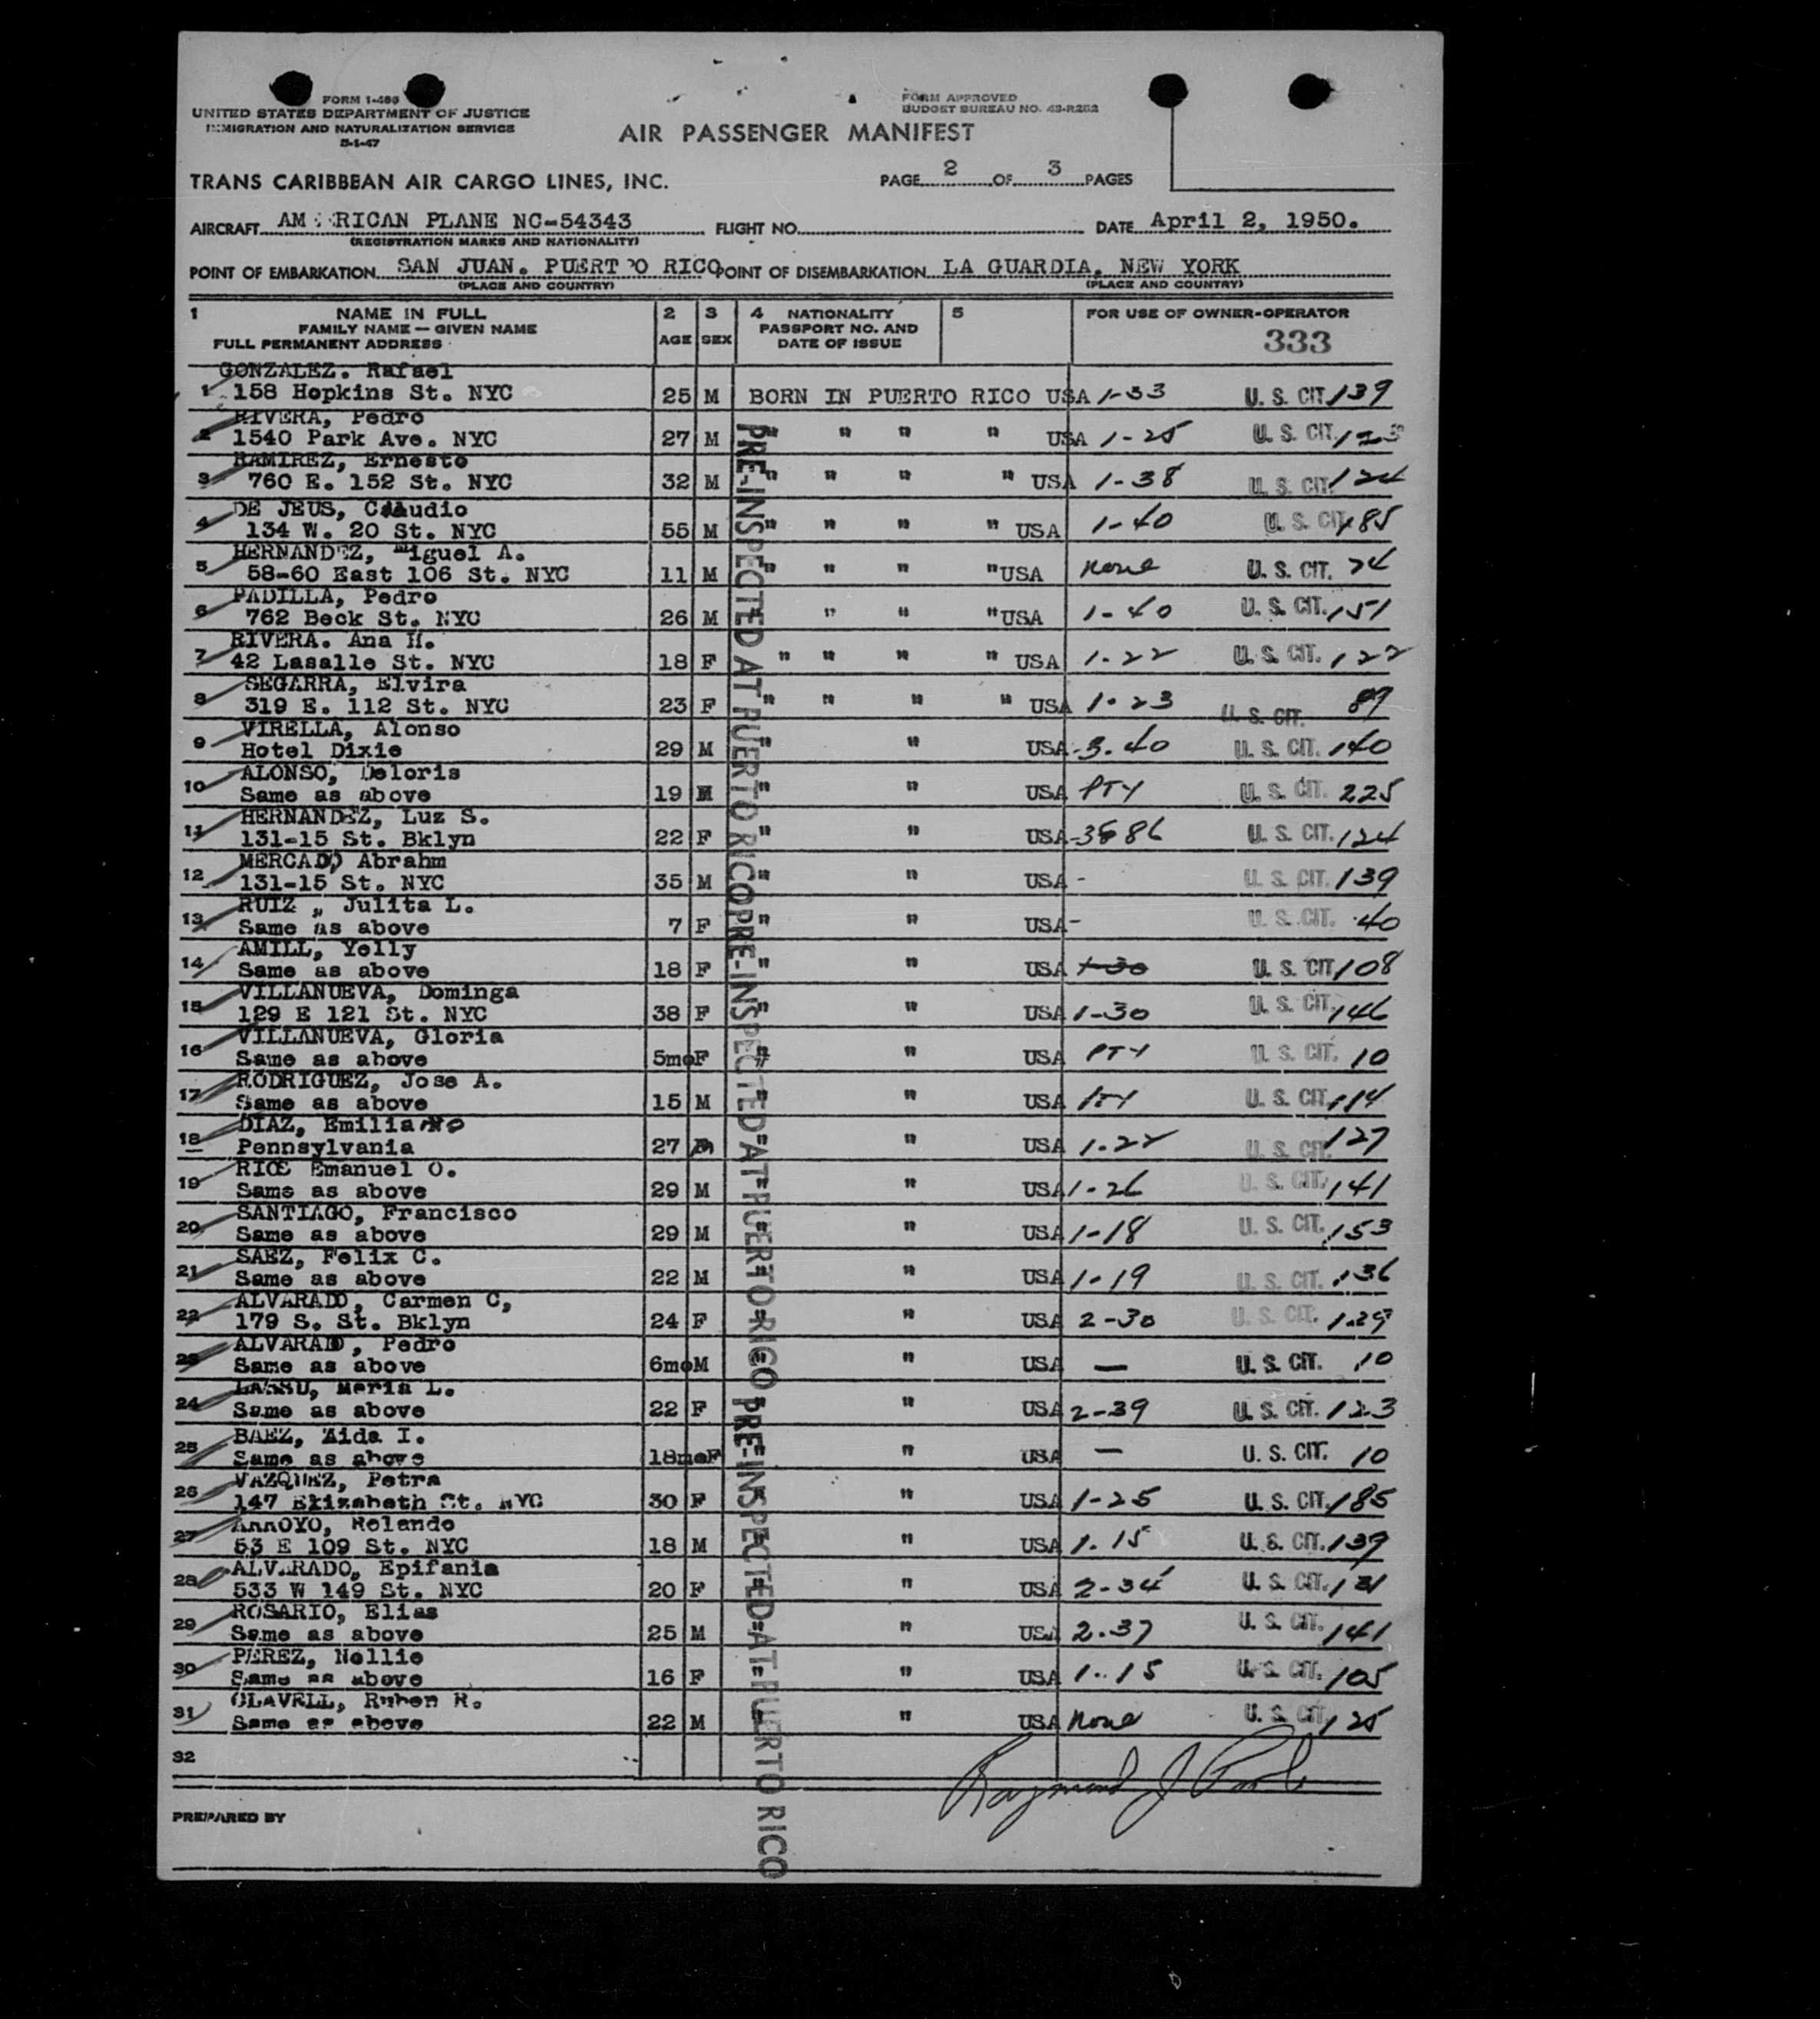 FORM I-466
UNITED STATES DEPARTMENT OF JUSTICE
IMMIGRATION AND NATURALIZATION SERVICE
5-1-47
FORM APPROVED
BUDGET BUREAU NO. 43-R262
AIR PASSENGER MANIFEST
TRANS CARIBBEAN AIR CARGO LINES, INC.
PAGE 2 OF 3 PAGES
AIRCRAFT AM RICAN PLANE NC-54343 FLIGHT NO. DATE April 2, 1950.
(REGISTRATION MARKS AND NATIONALITY)
POINT OF EMBARKATION SAN JUAN. PUERTO RICO POINT OF DISEMBARKATION LA GUARDIA, NEW YORK
(PLACE AND COUNTRY) (PLACE AND COUNTRY)
1 NAME IN FULL 2 3 4 NATIONALITY 5 FOR USE OF OWNER-OPERATOR
FAMILY NAME — GIVEN NAME PASSPORT NO. AND
FULL PERMANENT ADDRESS AGE SEX DATE OF ISSUE 333
GONZALEZ. Rafael
1 158 Hopkins St. NYC 25 M BORN IN PUERTO RICO USA 1-33 U. S. CIT. 139
RIVERA, Pedro
2 1540 Park Ave. NYC 27 M " " " " USA 1-25 U. S. CIT.
RAMIREZ, Ernesto
3 760 E. 152 St. NYC 32 M " " " " USA 1-38 U. S. CIT. 124
DE JEUS, Claudio
4 134 W. 20 St. NYC 55 M " " " " USA 1-40 U. S. CIT. 185
HERNANDEZ, Miguel A.
5 58-60 East 106 St. NYC 11 M " " " " USA None U. S. CIT. 74
PADILLA, Pedro
6 762 Beck St. NYC 26 M " " " USA 1-40 U. S. CIT. 151
RIVERA. Ana H.
7 42 Lasalle St. NYC 18 F " " " " USA 1-22 U. S. CIT. 122
SEGARRA, Elvira
8 319 E. 112 St. NYC 23 F " " " " USA 1-23 U. S. CIT. 89
VIRELLA, Alonso
9 Hotel Dixie 29 M " " USA -3-40 U. S. CIT. 140
ALONSO, Deloris
10 Same as above 19 M " " USA PTY U. S. CIT. 225
HERNANDEZ, Luz S.
11 131-15 St. Bklyn 22 F " " USA U. S. CIT. 124
MERCADO, Abrahm
12 131-15 St. NYC 35 M " " USA - U. S. CIT. 139
RUIZ , Julita L.
13 Same as above 7 F " " USA - U. S. CIT. 40
AMILL, Yelly
14 Same as above 18 F " " USA 1-30 U. S. CIT. 108
VILLANUEVA, Dominga
15 129 E 121 St. NYC 38 F " " USA 1-30 U. S. CIT. 146
VILLANUEVA, Gloria
16 Same as above 5mo F " " USA PTY U. S. CIT. 10
RODRIGUEZ, Jose A.
17 Same as above 15 M " " USA PTY U. S. CIT. 114
DIAZ, Emiliano
18 Pennsylvania 27 M " USA 1-22 U. S. CIT. 127
RIOS Emanuel O.
19 Same as above 29 M " USA 1-26 U. S. CIT. 141
SANTIAGO, Francisco
20 Same as above 29 M " USA 1-18 U. S. CIT. 153
SAEZ, Felix C.
21 Same as above 22 M " USA 1-19 U. S. CIT. 136
ALVARADO, Carmen C,
22 179 S. St. Bklyn 24 F " USA 2-30 U. S. CIT. 129
ALVARADO, Pedro
23 Same as above 6mo M " USA — U. S. CIT. 10
Maria L.
24 Same as above 22 F " USA 2-39 U. S. CIT. 123
BAEZ, Aida I.
25 Same as above 18mo F " USA — U. S. CIT. 10
VAZQUEZ, Petra
26 147 Elizabeth St. NYC 30 F " USA 1-25 U. S. CIT. 185
ARROYO, Rolando
27 53 E 109 St. NYC 18 M " USA 1-15 U. S. CIT. 139
ALVARADO, Epifania
28 533 W 149 St. NYC 20 F " USA 2-34 U. S. CIT. 121
ROSARIO, Elias
29 Same as above 25 M " USA 2-37 U. S. CIT. 141
PEREZ, Nellie
30 Same as above 16 F " USA 1-15 U. S. CIT. 105
OLAVELL, Ruben R.
31 Same as above 22 M " USA None U. S. CIT. 125
32
PREPARED BY
PRE-INSPECTED AT PUERTO RICO PRE-INSPECTED AT PUERTO RICO PRE-INSPECTED AT PUERTO RICO